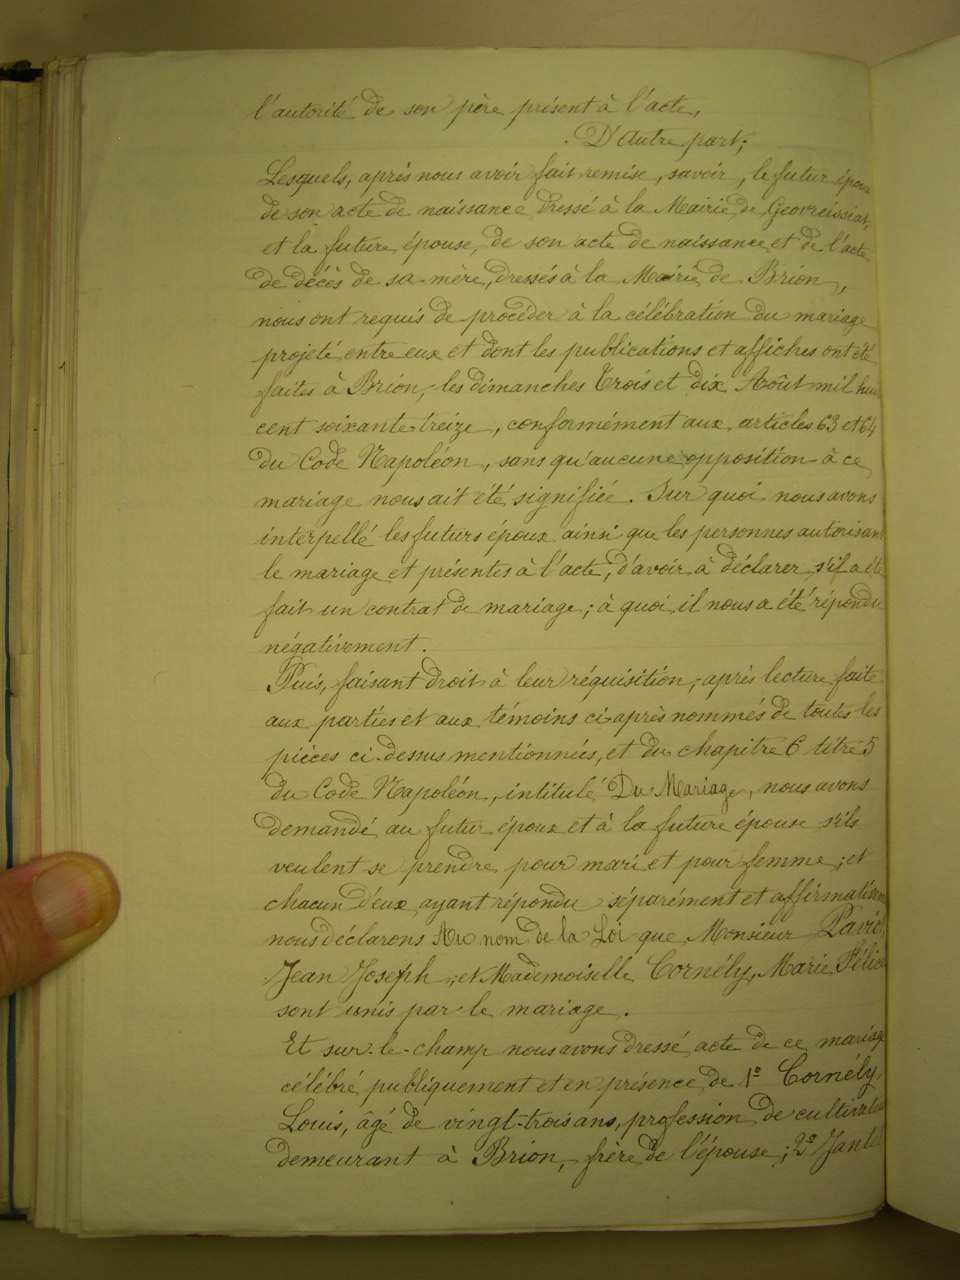 l'autorité de son père présent à l'acte,
D'Autre part;
Lesquels, après nous avoir fait remise, savoir, le futur époux
de son acte de naissance dressé à la Mairie de Geovreissiat,
et la future épouse, de son acte de naissance et de l'acte
de décès de sa mère, dressés à la Mairie de Brion,
nous ont requis de procéder à la célébration du mariage
projeté entre eux et dont les publications et affiches ont été
faites à Brion, les dimanches Trois et dix Août mil huit
cent soixante-treize, conformément aux articles 63 et 64
du Code Napoléon, sans qu'aucune opposition à ce
mariage nous ait été signifiée. Sur quoi nous avons
interpellé les futurs époux ainsi que les personnes autorisant
le mariage et présentes à l'acte, d'avoir à déclarer s'il a été
fait un contrat de mariage; à quoi il nous a été répondu
négativement.
Puis, faisant droit à leur réquisition, après lecture faite
aux parties et aux témoins ci-après nommés de toutes les
pièces ci-dessus mentionnées, et du chapitre 6 titre 5
du Code Napoléon, intitulé Du Mariage, nous avons
demandé au futur époux et à la future épouse s'ils
veulent se prendre pour mari et pour femme; et
chacun d'eux ayant répondu séparément et affirmativem
nous déclarons Au nom de la Loi que Monsieur
Jean Joseph, et Mademoiselle Cornély, Marie Félicie
sont unis par le mariage.
Et sur-le-champ nous avons dressé acte de ce mariage
célébré publiquement et en présence de 1° Cornély,
Louis, âgé de vingt-trois ans, profession de cultivateur
demeurant à Brion, frère de l'épouse; 2°